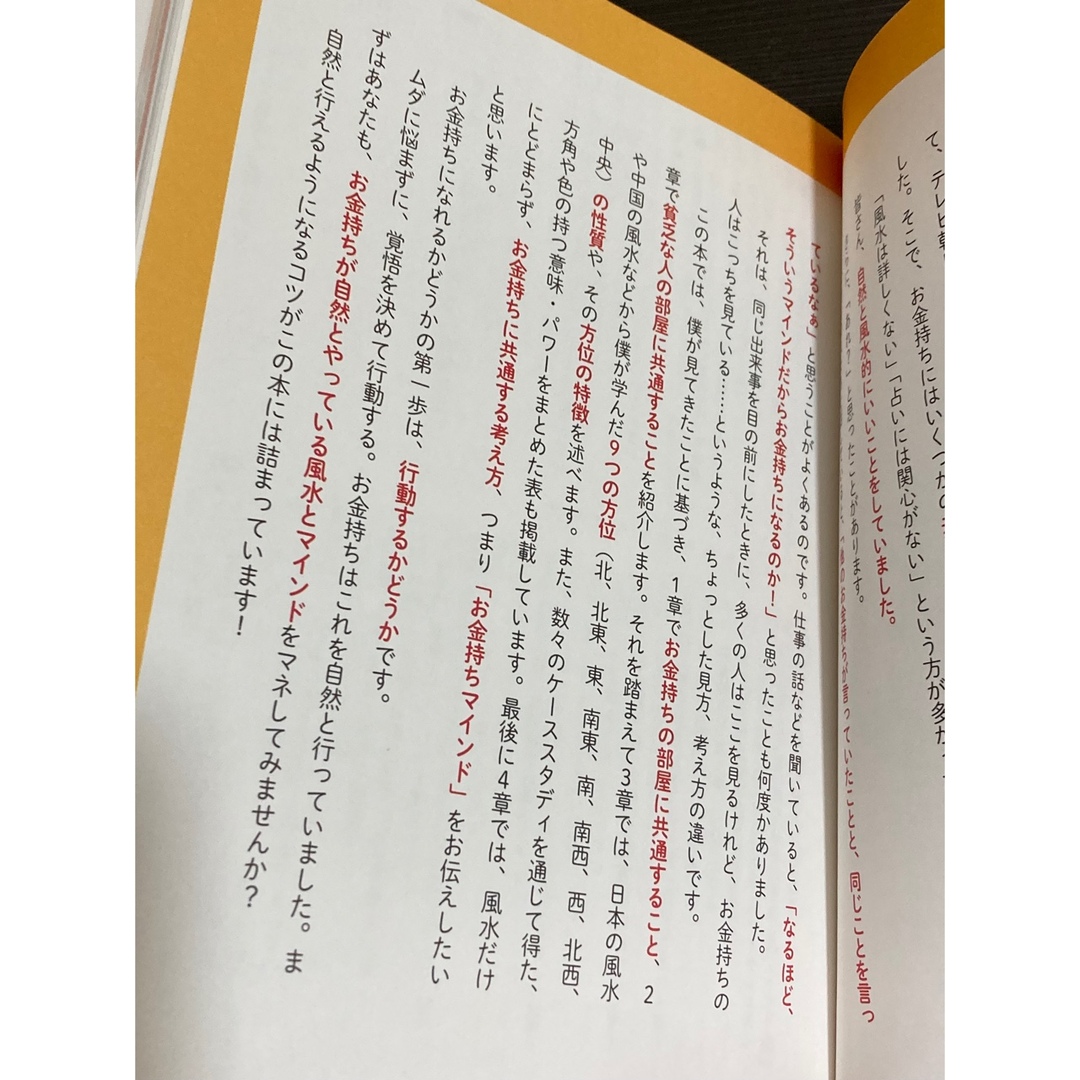 て、テレビ朝
した。そこで、お金持ちにはいくつかの
「風水は詳しくない」「占いには関心がない」という方が多か
皆さん、自然と風水的にいいことをしていました。
「あれ?」と思ったことがあります。
のお金持ちが言っていたことと、同じことを言っ
ているなぁ」と思うことがよくあるのです。仕事の話などを聞いていると、「なるほど、
そういうマインドだからお金持ちになるのか!」と思ったことも何度かありました。
それは、同じ出来事を目の前にしたときに、多くの人はここを見るけれど、お金持ちの
人はこっちを見ている……というような、ちょっとした見方、考え方の違いです。
この本では、僕が見てきたことに基づき、1章でお金持ちの部屋に共通すること、2
章で貧乏な人の部屋に共通することを紹介します。それを踏まえて3章では、日本の風水
や中国の風水などから僕が学んだ9つの方位(北、北東、東、南東、南、南西、西、北西、
中央)の性質や、その方位の特徴を述べます。また、数々のケーススタディを通じて得た、
方角や色の持つ意味・パワーをまとめた表も掲載しています。最後に4章では、風水だけ
にとどまらず、お金持ちに共通する考え方、つまり「お金持ちマインド」をお伝えしたい
と思います。
お金持ちになれるかどうかの第一歩は、行動するかどうかです。
ムダに悩まずに、覚悟を決めて行動する。お金持ちはこれを自然と行っていました。ま
ずはあなたも、お金持ちが自然とやっている風水とマインドをマネしてみませんか?
自然と行えるようになるコツがこの本には詰まっています!